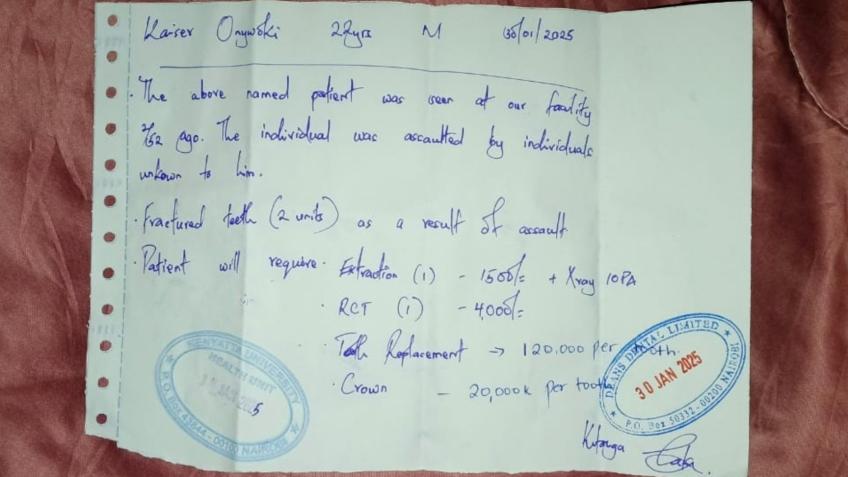 Kaiser Onywoki 22yrs M 30/01/2025
· The above named patient was seen at our facility
2/52 ago. The individual was assaulted by individuals
unkown to him.
· Fractured teeth (2 units) as a result of assault
· Patient will require · Extraction (1) - 1500/= + Xray IOPA
· RCT (1) - 4000/=
· Tooth Replacement → 120,000 per tooth.
· Crown - 20,000k per tooth
KENYATTA UNIVERSITY
HEALTH UNIT
JAN 2025
P.O. Box 43844 - 00100 NAIROBI
DEANS DENTAL LIMITED
30 JAN 2025
P.O. Box 50332-00200 NAIROBI